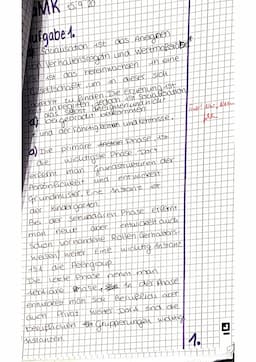 GMK 15.9.20
Aufgabe 1.
Sozialisation ist das Aneignen
von Verhaltensregeln und Wertmaßstäben
ist das Hineinwachsen in eine
Gesellschaft um in dieser sich
zu finden. Die Erziehung ist
Sozialisation
und nicht
beigebracht bekommen
und der Fähigkeiten und Kenntnisse.
a) Die primäre Phase, ist
die wichtigste Phase. Dort
erlernt man Grundstrukturen der
Persönlichkeit und entwickelt
Grundmuster. Eine Instanz ist
der Kindergarten.
Bei der sekundären Phase erlernt
man neue oder entwickelt auch
schon vorhandene Rollen, Verhaltens-
weisen weiter. Eine wichtig Instanz
ist die Peergroup.
Die letzte Phase nennt man
tertiäre Phase. In der Phase
entwickelt man sich Beruflich oder
auch Privat weiter. Dort sind die
beruflichen Gruppierungen wichtig
Instanzen.
1.